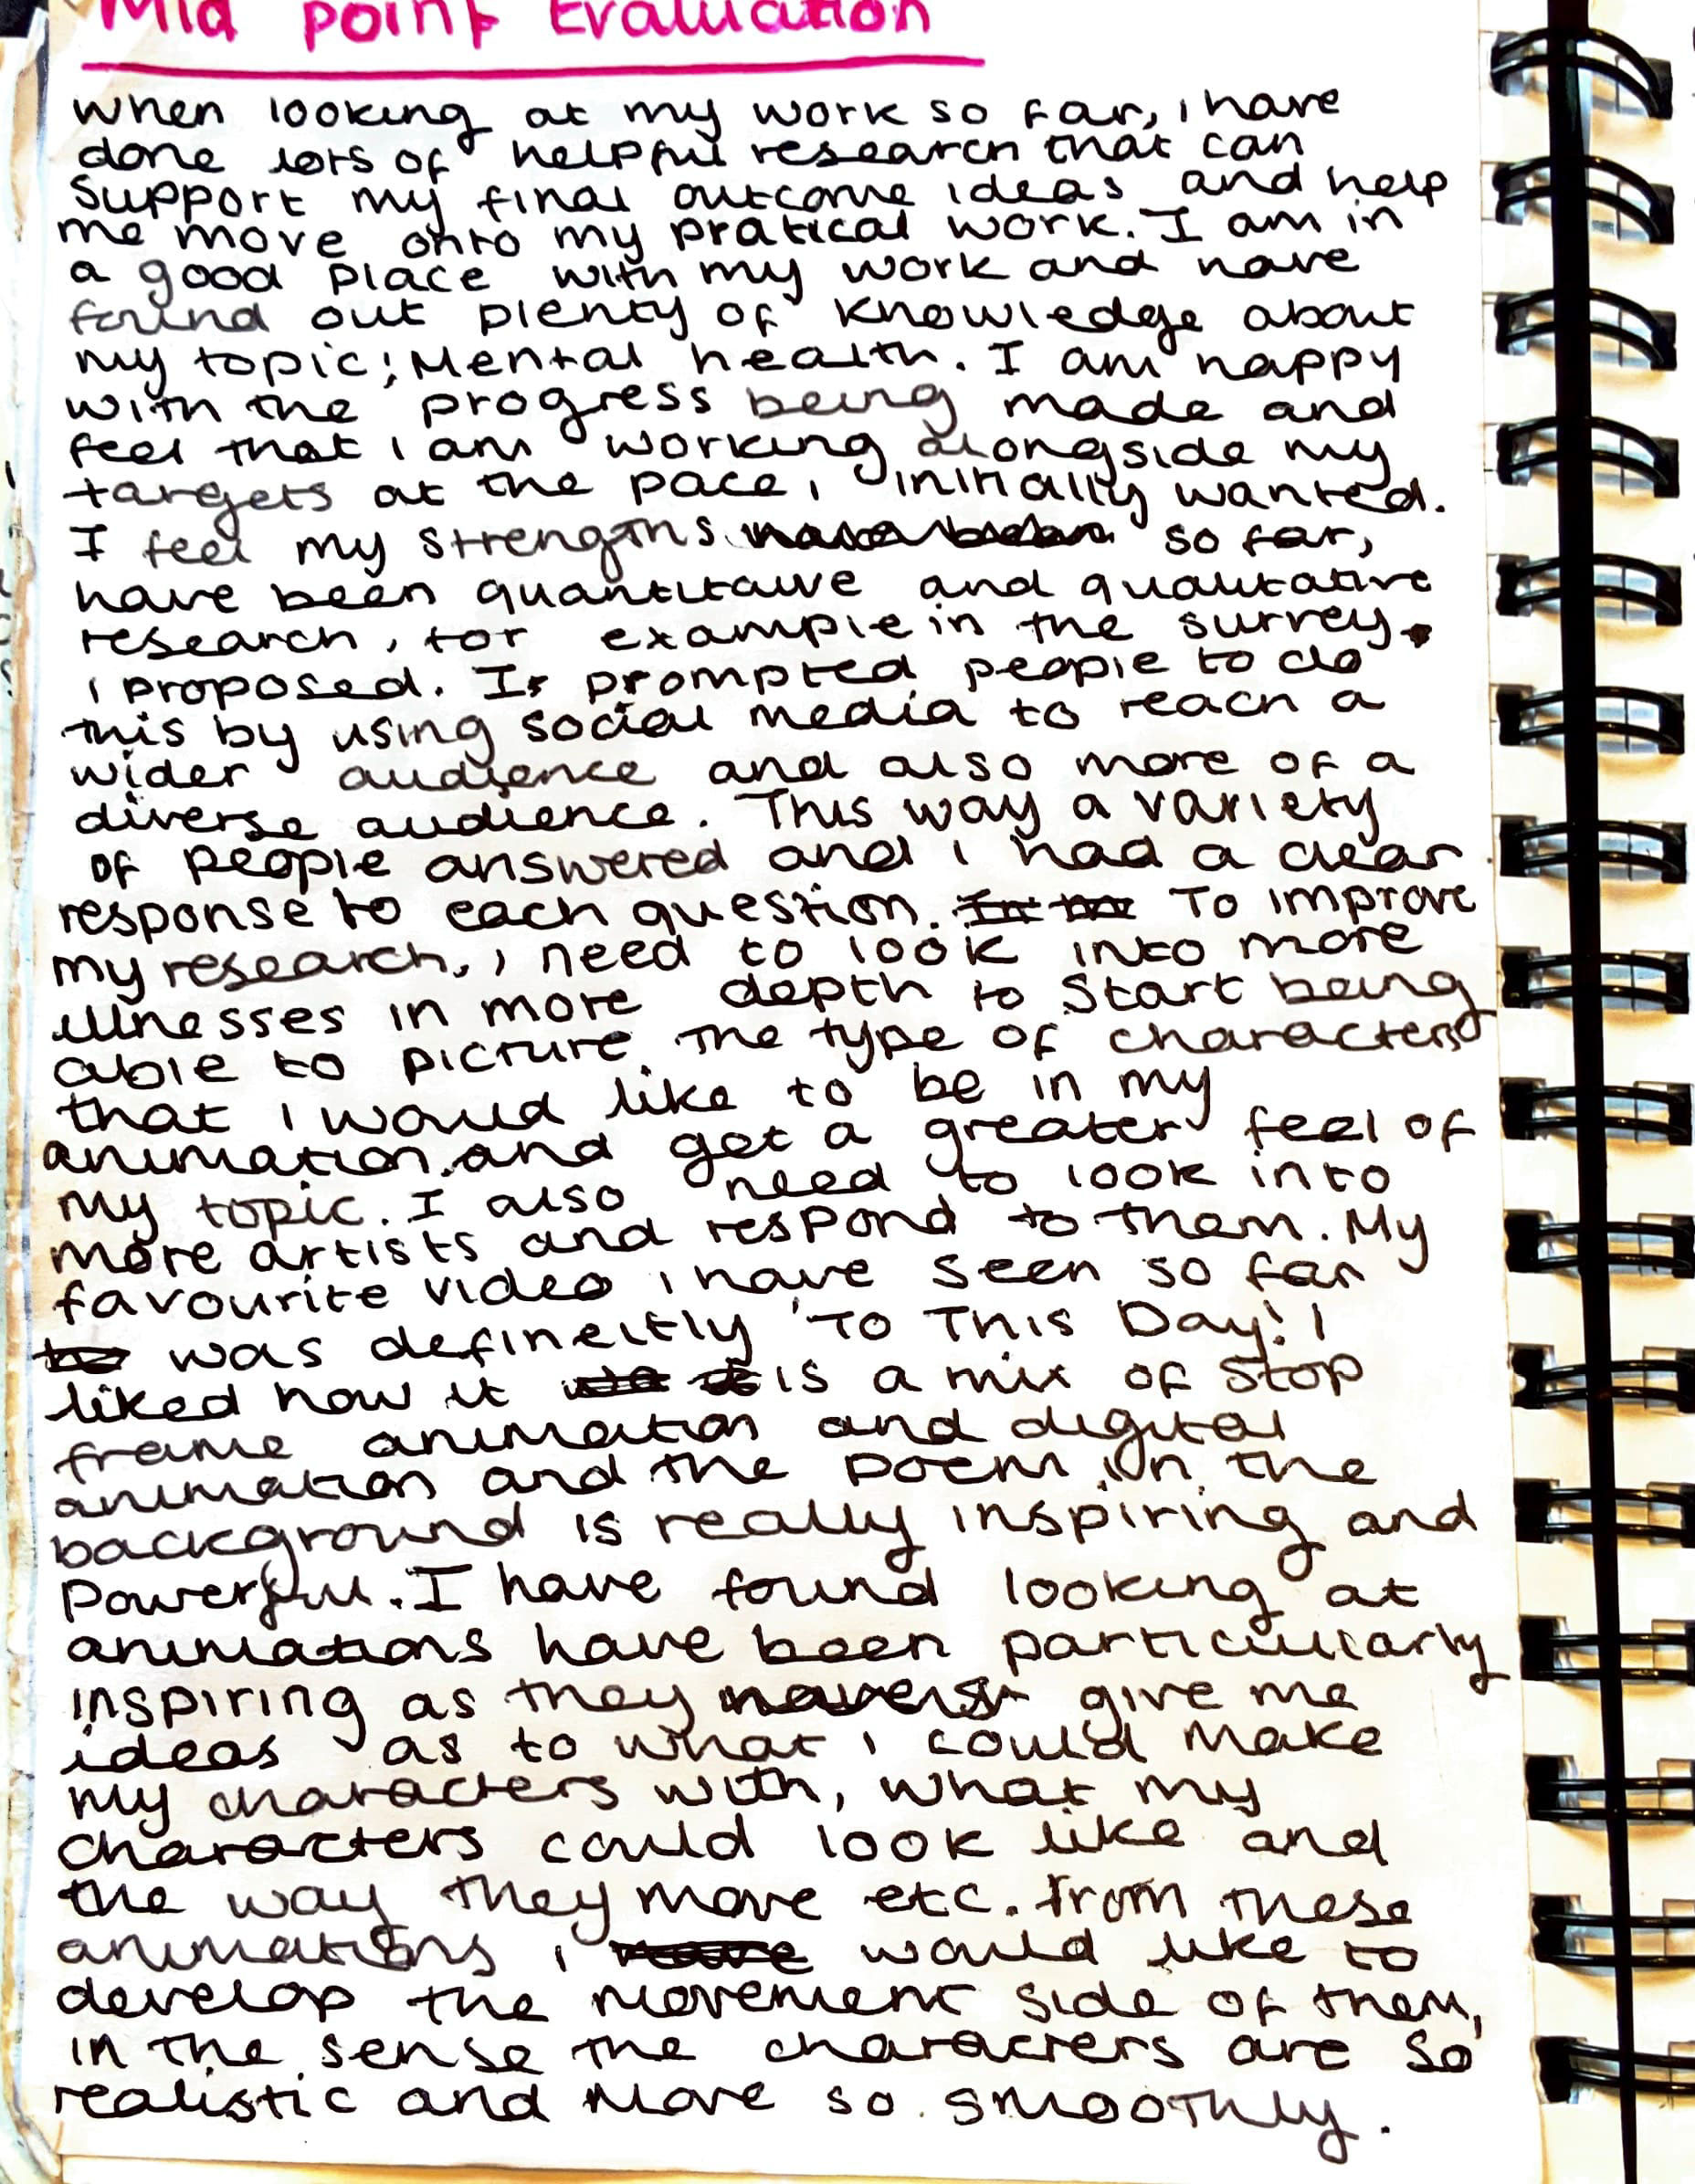 Mid point Evaluation
when looking at my work so far, i have
done lots of helpful research that can
support my final outcome ideas and help
me move onto my pratical work. I am in
a good place with my work and have
found out plenty of knowledge about
my topic; Mental health. I am happy
with the progress being made and
feel that i am working alongside my
targets at the pace i initially wanted.
I feel my strengths so far,
have been quantitative and qualitative
research, for example in the survey
i proposed. I prompted people to do
this by using social media to reach a
wider audience and also more of a
diverse audience. This way a variety
of people answered and i had a clear
response to each question. To improve
my research, i need to look into more
illnesses in more depth to start being
able to picture the type of characters
that i would like to be in my
animation and get a greater feel of
my topic. I also need to look into
more artists and respond to them. My
favourite video i have seen so far
was defineitly 'To This Day'. I
liked how it is a mix of stop
frame animation and digital
animation and the poem in the
background is really inspiring and
powerful. I have found looking at
animations have been particularly
inspiring as they give me
ideas as to what i could make
my characters with, what my
characters could look like and
the way they move etc. From these
animations i would like to
develop the movement side of them,
in the sense the characters are so
realistic and move so smoothly.